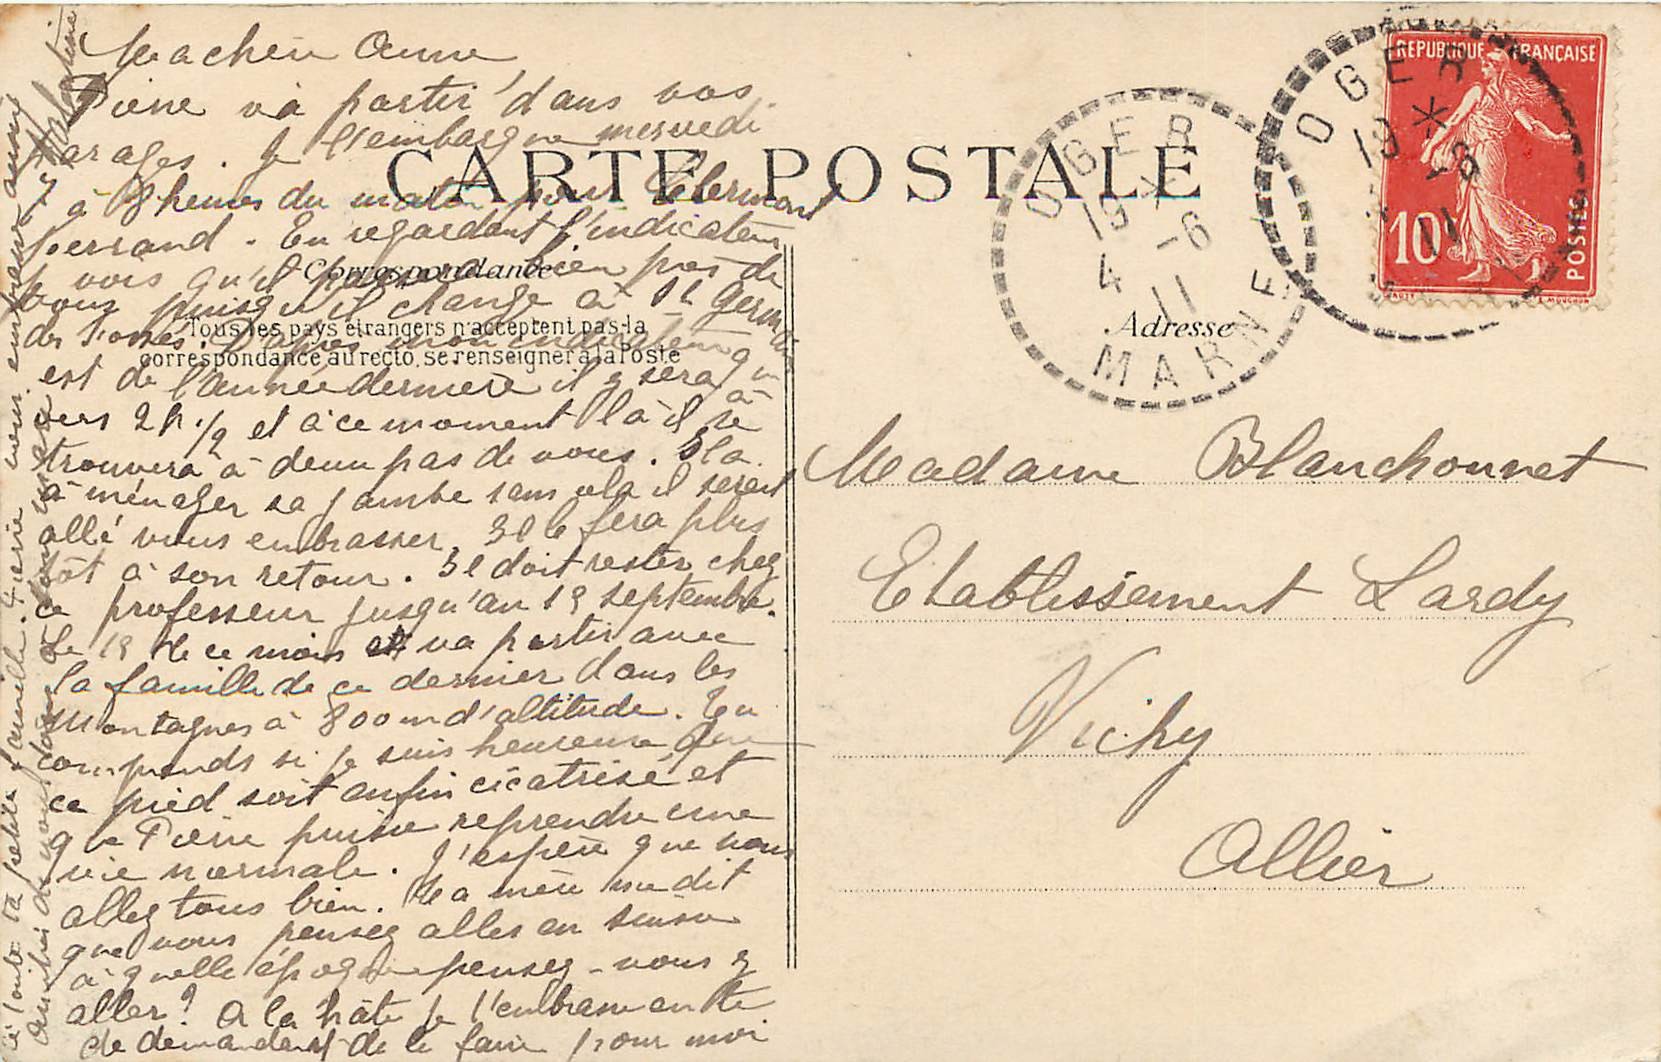 Ma chère Anna
Pierre va partir dans vos
parages. Je l'embarque mercredi
à 8 heures du matin pour Clermont
Ferrand. En regardant l'indicateur
je vois qu'il passera bien près de
vous puisqu'il change à St Germain
des Fossés. D'après mon indicateur qui
est de l'année dernière il y sera
vers 2h 1/2 et à ce moment là il se
trouvera à deux pas de vous. Il a
à ménager sa jambe sans cela il serait
allé vous embrasser. Il le fera plus
tôt à son retour. Il doit rester chez
ce professeur jusqu'au 19 septembre.
Le 19 de ce mois va partir avec
la famille de ce dernier dans les
montagnes à 800 m d'altitude. Tu
comprends si je suis heureuse que
ce pied soit enfin cicatrisé et
que Pierre puisse reprendre une
vie normale. J'espère que vous
allez tous bien. Ta mère me dit
que vous pensez aller en Suisse
à quelle époque pensez-vous y
aller? A la hâte je t'embrasse en te
demandant de le faire pour moi
à toute ta petite famille.
CARTE POSTALE
Correspondance
Tous les pays étrangers n'acceptent pas la
correspondance au recto, se renseigner à la Poste
Adresse
OGER
19 *
4 -6
11
MARNE
OGER
19 *
-6
11
REPUBLIQUE FRANÇAISE
10c
POSTES
Madame Blanchonnet
Etablissement Lardy
Vichy
Allier